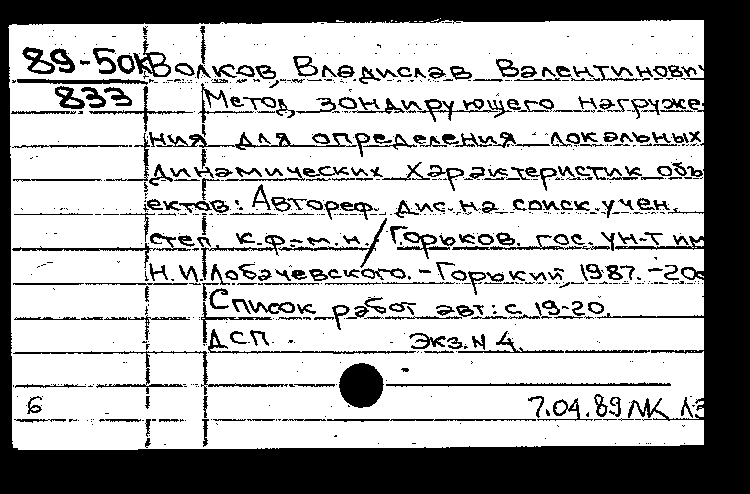 89-50к Волков, Владислав Валентинович
833 Метод зондирующего нагруже-
ния для определения локальных
динамических характеристик объ-
ектов: Автореф. дис. на соиск. учен.
степ. к.ф.-м.н. / Горьков. гос. ун-т им
Н.И Лобачевского. - Горький, 1987. - 20с
Список работ авт: с. 19-20.
ДСП. Экз. N 4.
6 7.04.89 МК